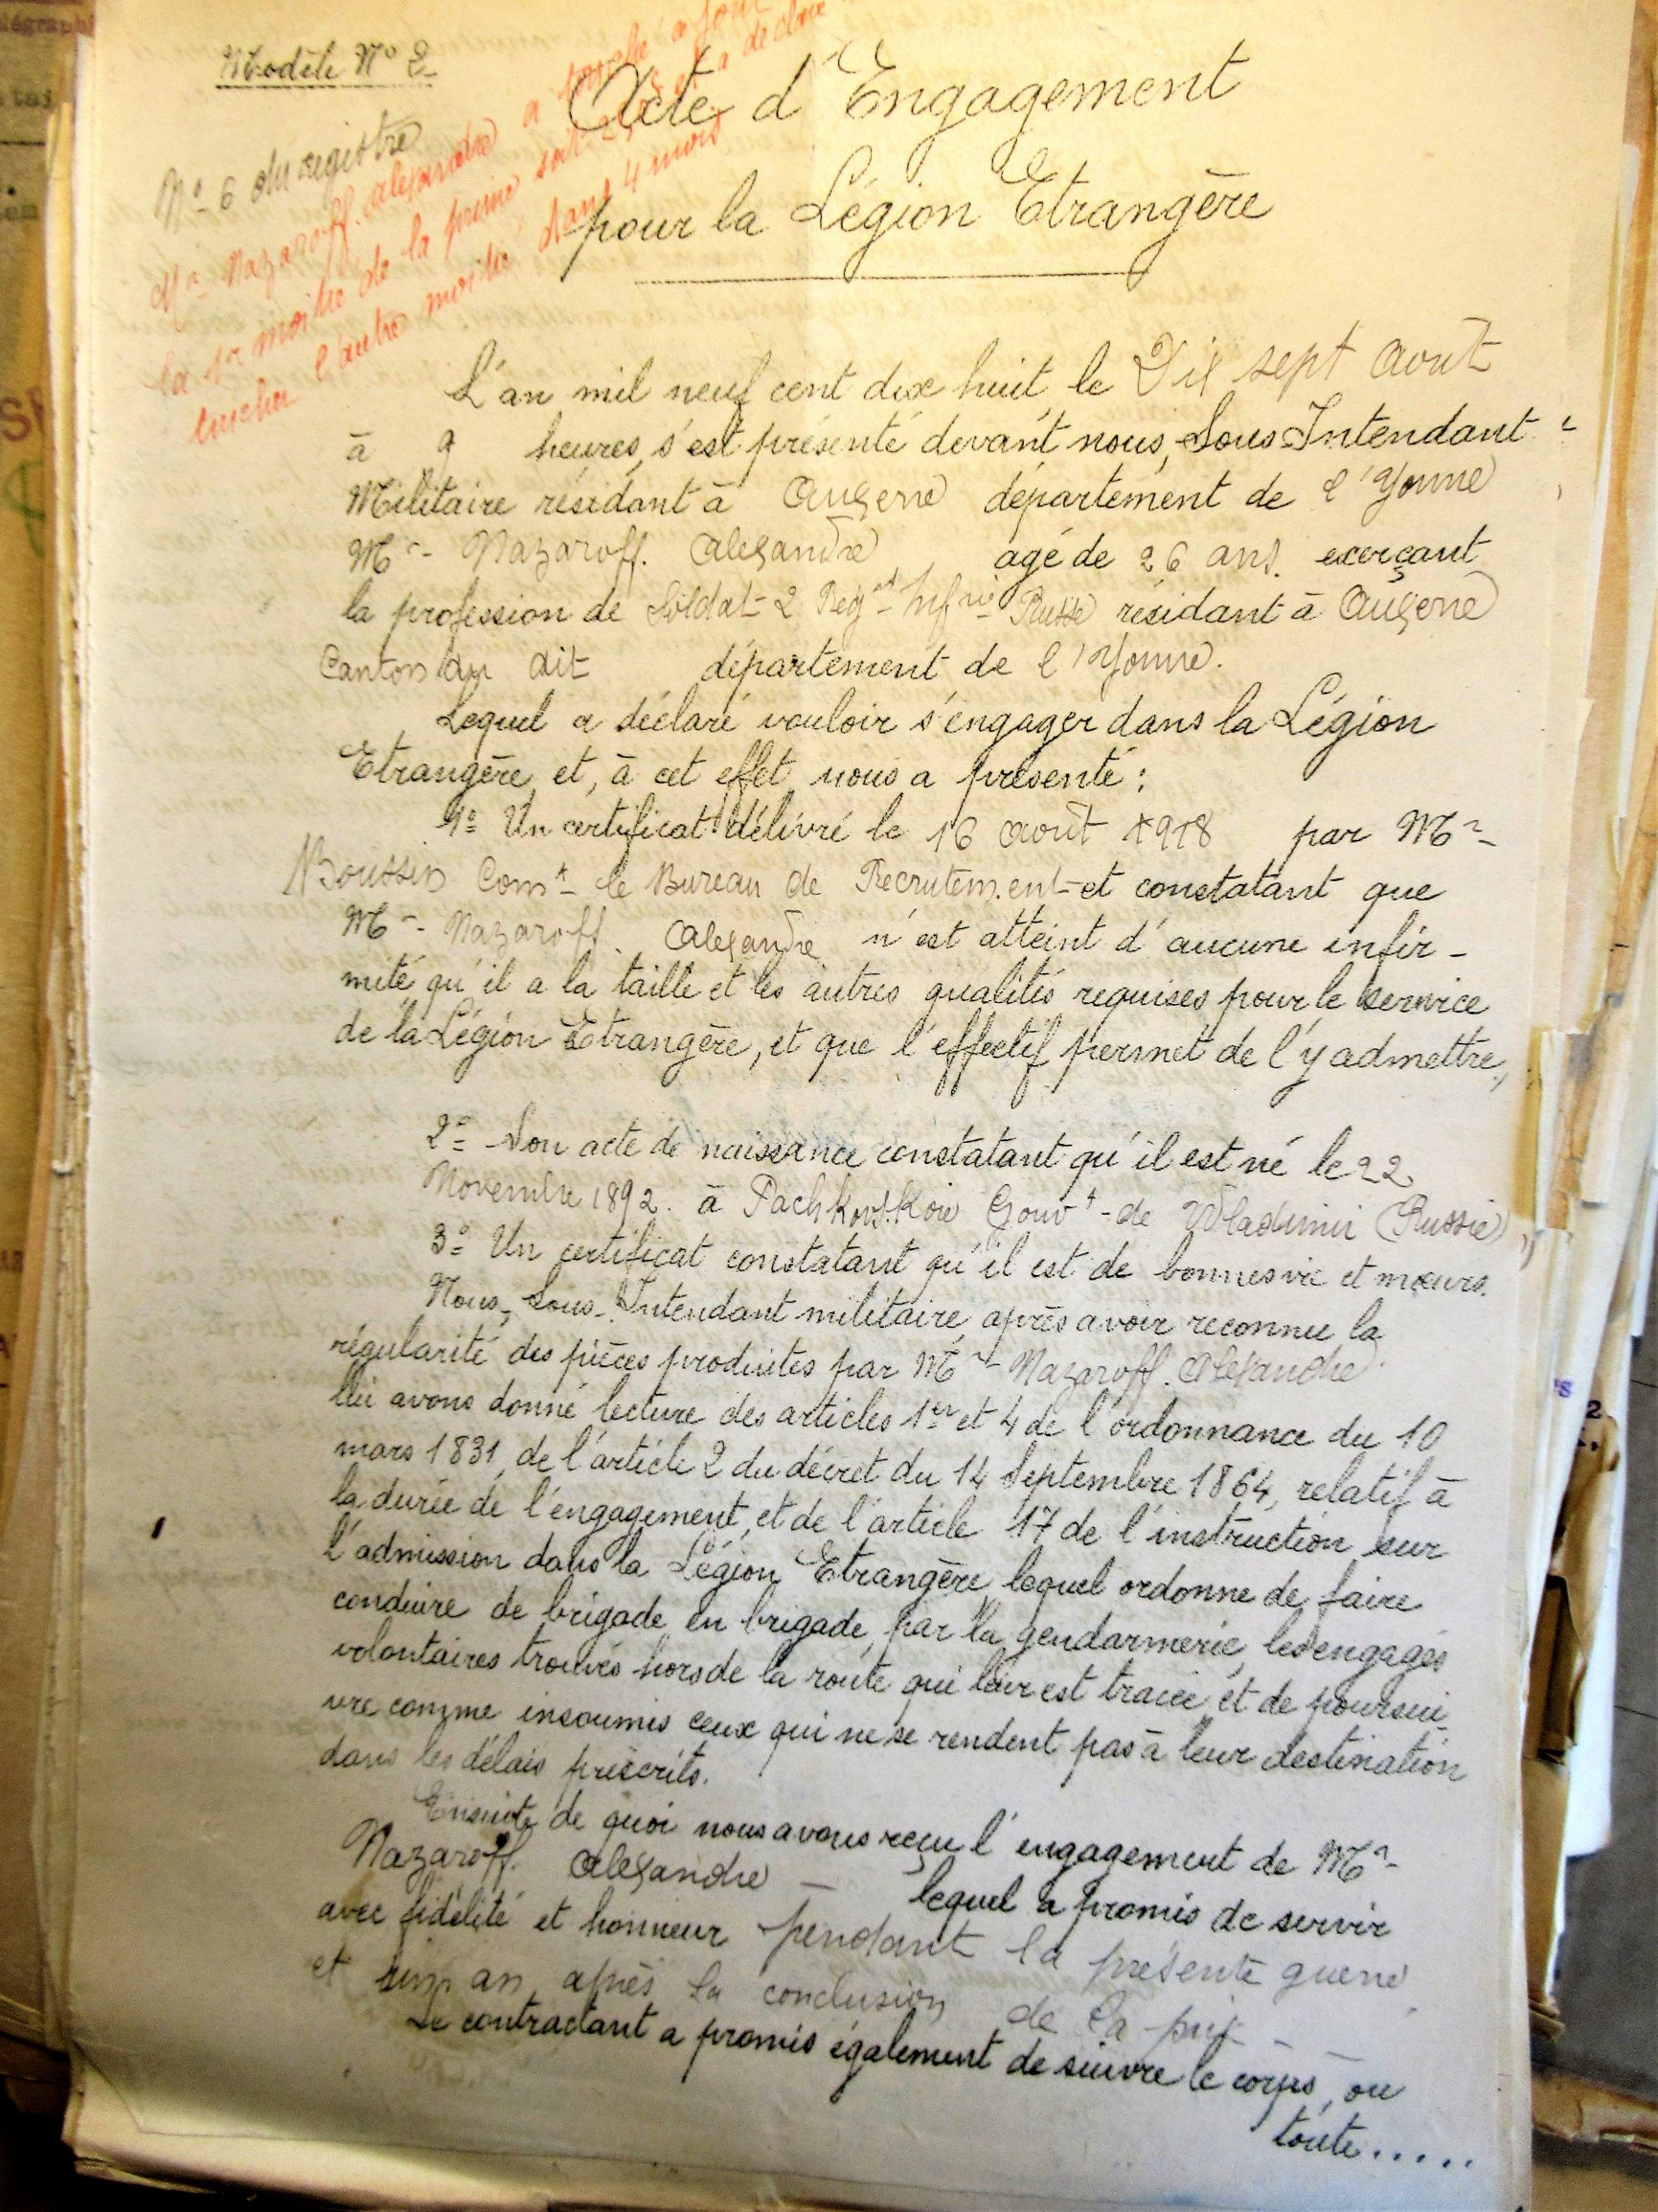 Modèle N° 2
Acte d'Engagement
pour la Légion Etrangère
N° 6 du registre
Mr Nazaroff. Alexandre a touché ce jour
la 1re moitié de la prime soit et a déclaré
toucher l'autre moitié dans 4 mois
L'an mil neuf cent dix huit le Dix sept Aout
à 9 heures, s'est présenté devant nous, Sous-Intendant
Militaire résidant à Auxerre département de l'Yonne
Mr Nazaroff. Alexandre agé de 26 ans. exerçant
la profession de Soldat 2 Regt Infrie Russe résidant à Auxerre
Canton du dit département de l'Yonne.
Lequel a déclaré vouloir s'engager dans la Légion
Etrangère et, à cet effet nous a présenté :
1° Un certificat délivré le 16 Août 1918 par Mr
Boussin Comt le Bureau de Recrutement et constatant que
Mr Nazaroff. Alexandre n'est atteint d'aucune infir-
mité qu'il a la taille et les autres qualités requises pour le service
de la Légion Etrangère, et que l'effectif permet de l'y admettre,
2° Son acte de naissance constatant qu'il est né le 22
Novembre 1892. à Pachkovskoie Gouvt de Wladimir (Russie)
3° Un certificat constatant qu'il est de bonnes vie et mœurs.
Nous, Sous-Intendant militaire, après avoir reconnu la
régularité des pièces produites par Mr Nazaroff. Alexandre.
lui avons donné lecture des articles 1er et 4 de l'ordonnance du 10
mars 1831, de l'article 2 du décret du 14 Septembre 1864, relatif à
la durée de l'engagement, et de l'article 17 de l'instruction sur
l'admission dans la Légion Etrangère, lequel ordonne de faire
conduire de brigade en brigade, par la gendarmerie, les engagés
volontaires trouvés hors de la route qui leur est tracée, et de poursui
vre comme insoumis ceux qui ne se rendent pas à leur destination
dans les délais prescrits.
Ensuite de quoi nous avons reçu l'engagement de Mr
Nazaroff. Alexandre — lequel a promis de servir
avec fidélité et honneur pendant la présente guerre
et un an après la conclusion de la paix —
Le contractant a promis également de suivre le corps, ou
toute.....